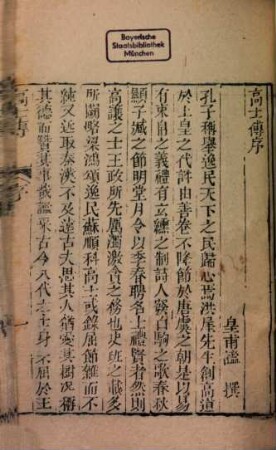 Bayerische
Staatsbibliothek
München
高士傳序
皇甫謐 撰
孔子稱舉逸民天下之民歸心焉洪崖先生創高道
於上皇之代許由善卷不降節於唐虞之朝是以易
有束帛之義禮有玄纁之制詩人發白駒之歌春秋
顯子臧之節明堂月令以季春聘名士禮賢者然則
高讓之士王政所先厲濁激貪之務也史班之載多
所闕略梁鴻頌逸民蘇順科高士或錄屈節雜而不
純又近取秦漢不及遠古夫思其人猶愛其樹况稱
其德而贊其事哉謐采古今八代之士身不屈於王
高士傳
序